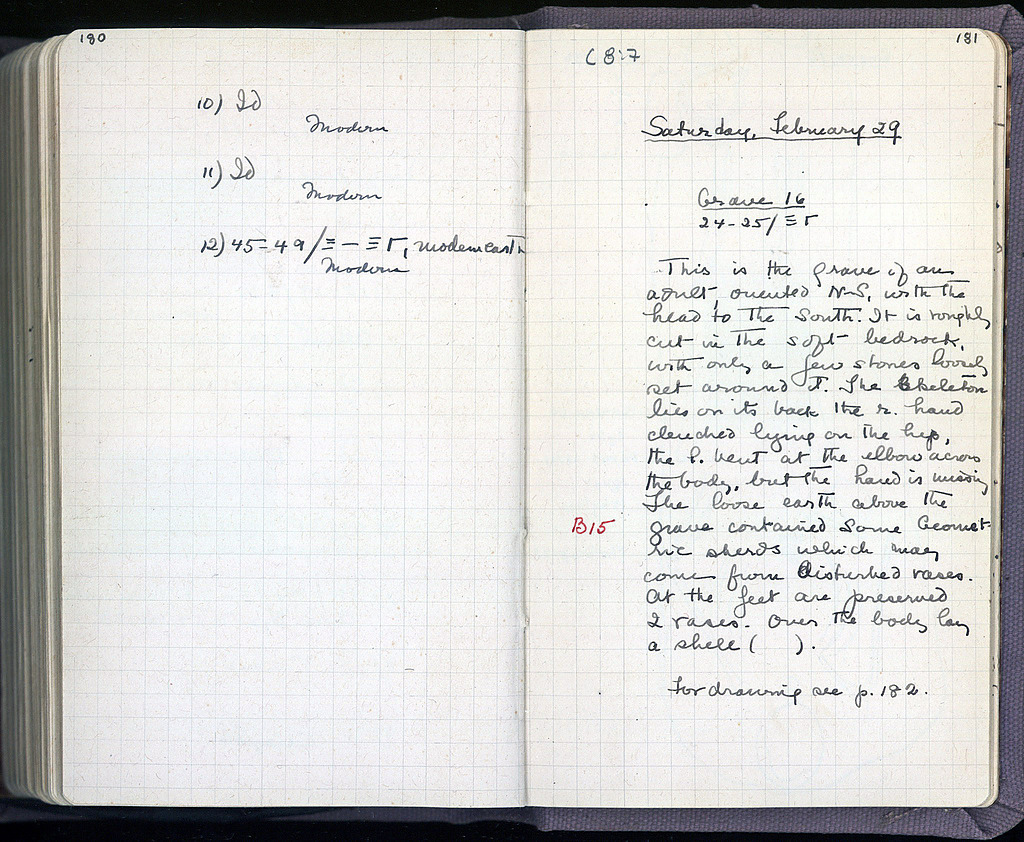 180
10) Id
Modern
11) Id
Modern
12) 45-49/Ξ - ΞΓ, modern earth
Modern
181
C 8:7
Saturday, February 29
Grave 16
24-25/ΞΓ
This is the grave of an
adult, oriented N-S, with the
head to the South. It is roughly
cut in the soft bedrock,
with only a few stones loosely
set around it. The Skeleton
lies on its back the r. hand
clenched lying on the hip,
the l. bent at the elbow across
the body, but the hand is missing
The loose earth above the
B15
grave contained some Geomet-
ric sherds which may
come from disturbed vases.
At the feet are preserved
2 vases. Over the body lay
a shell (   ).
For drawing see p. 182.